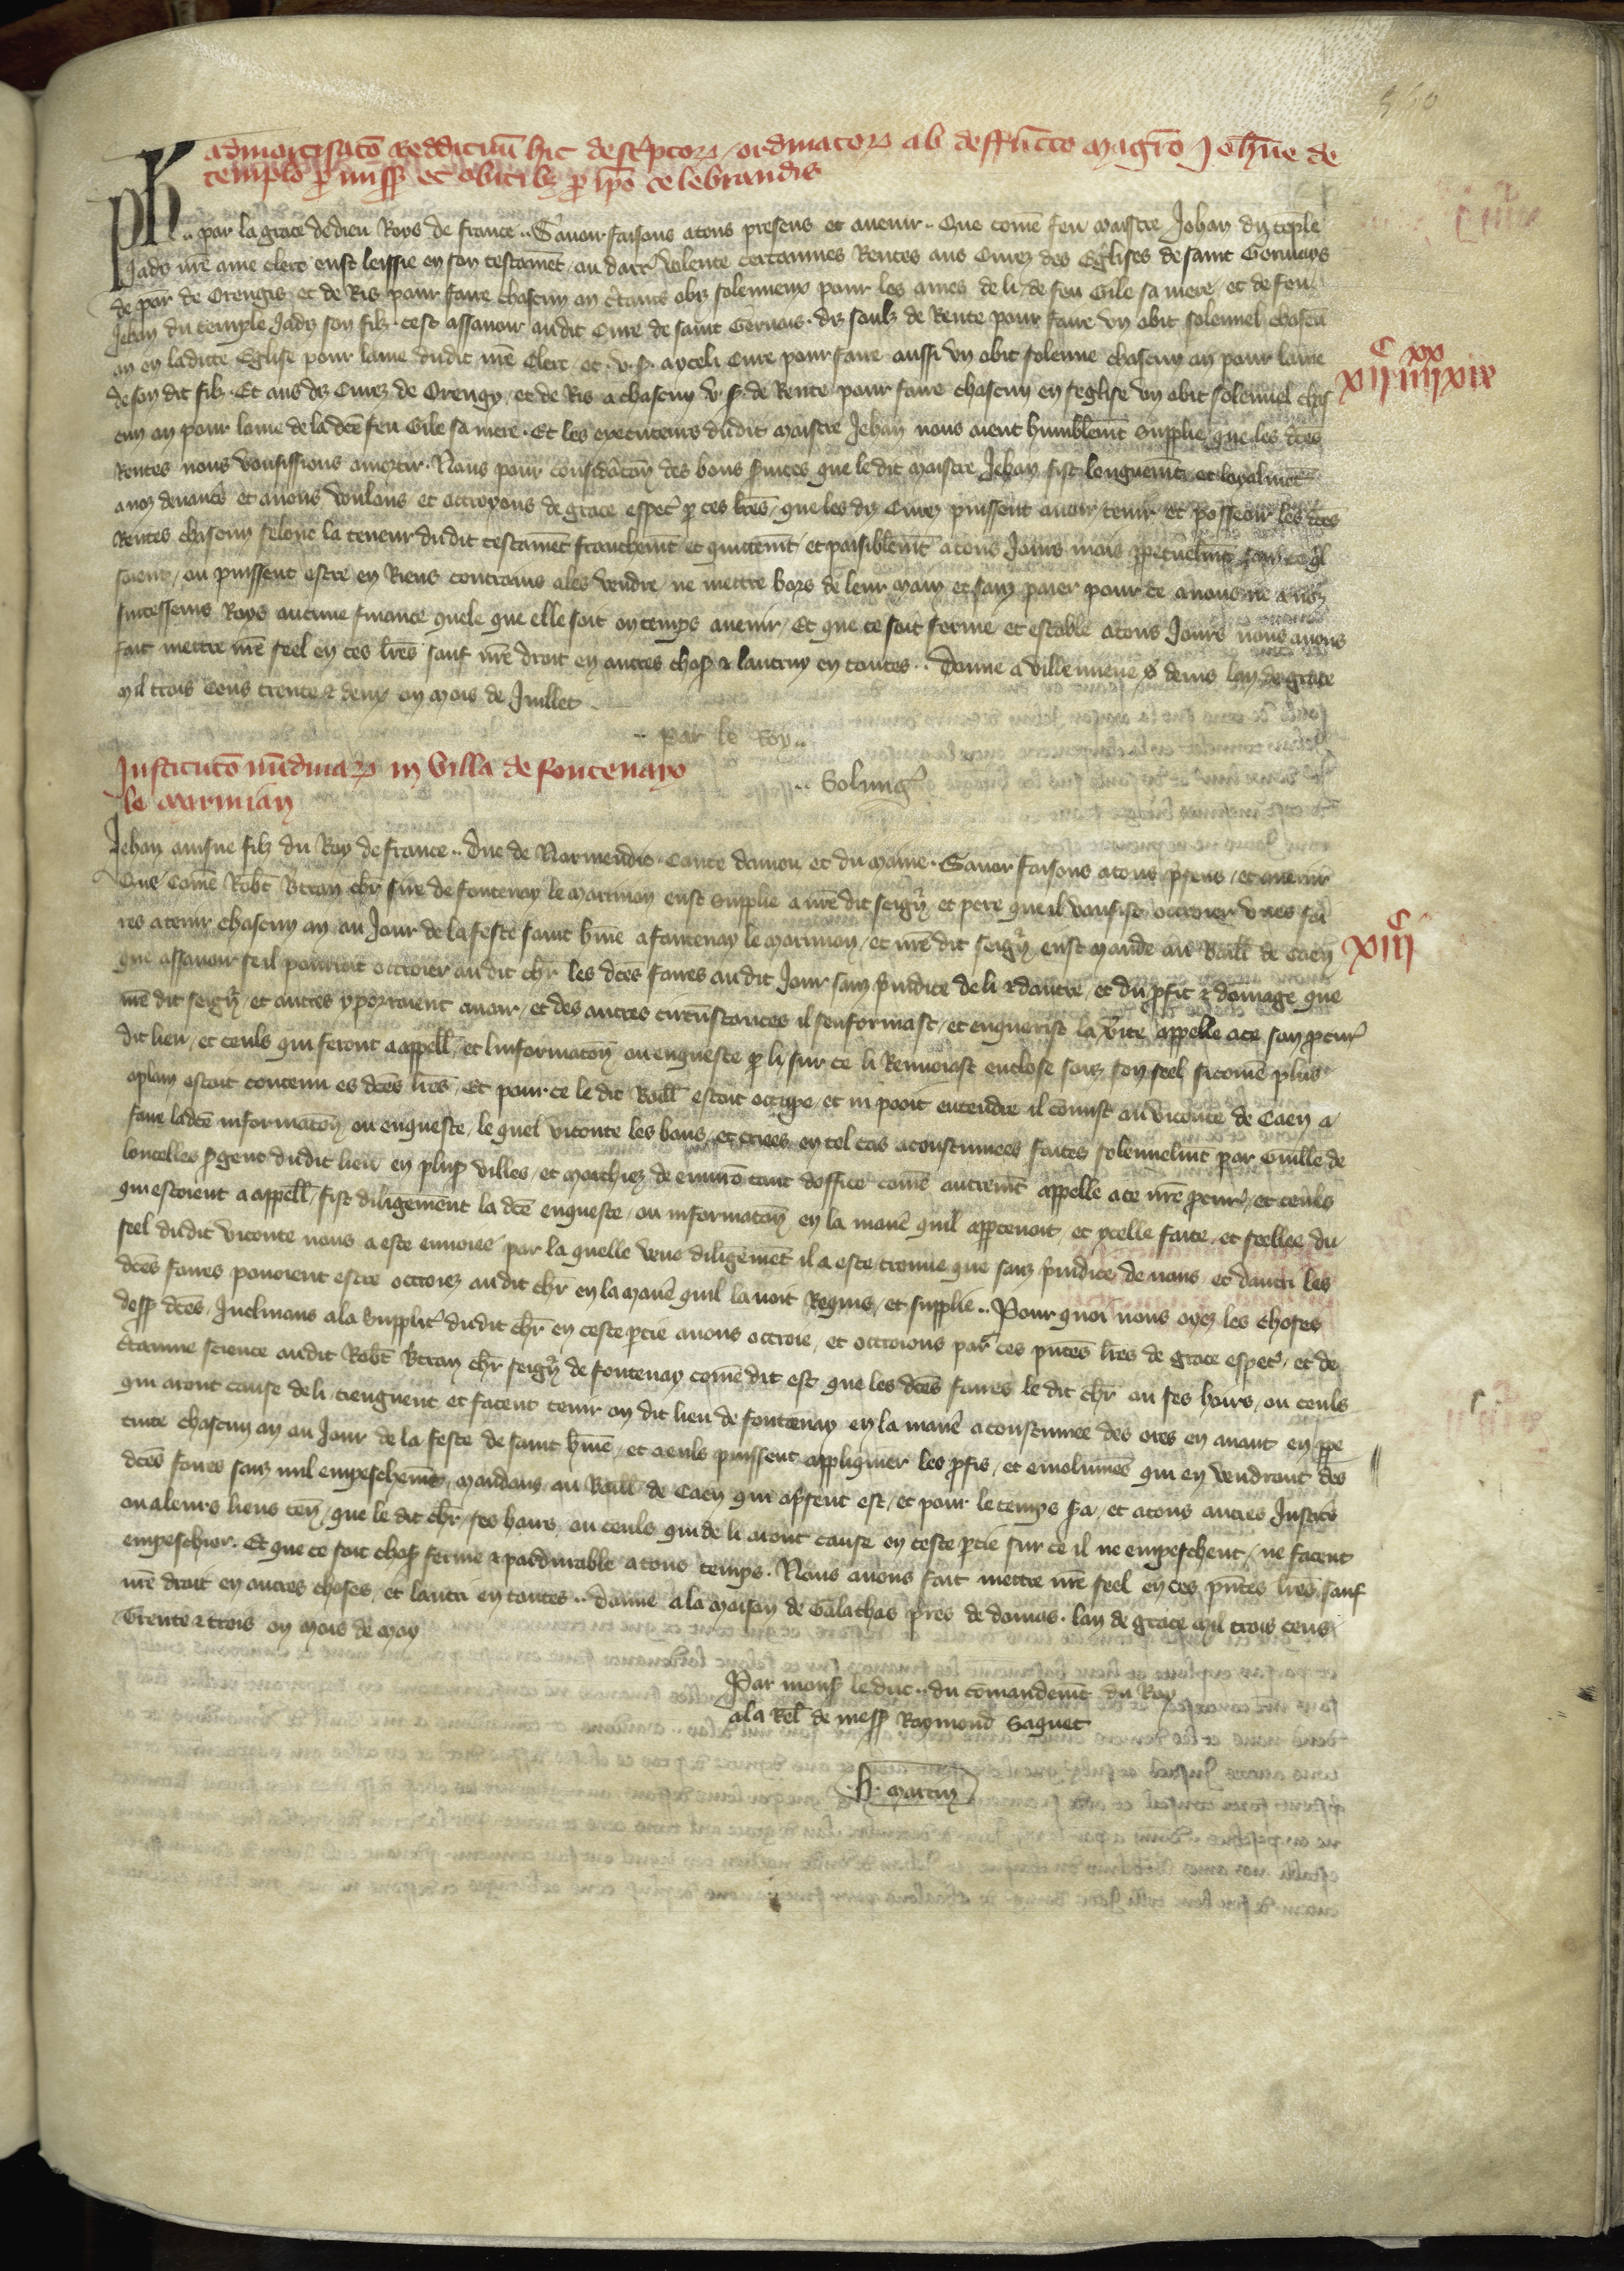 560
admortisatõ reddituũ hic descͥptoꝝ / ordinatoꝝ ab deffũcto magrõ Joh̃ne de
templo ꝓ miss̃ et obitibꝫ ꝓ ip̃o celebrandis
Ph̃ .. par la grace de dieu Roys de france .. Sauoir faisons a tous presens et auenir .. Que com̃e feu maistre Jehan du tẽple
jadis nr̃e ame clerc eust lessie en son testamẽt / ou darr̃ volente certainnes Rentes aus Curez des Eglises de saint Geruays
de par̃ de Orengis et de Ris pour faire chascun an c̃tains obiz solennieux pour les ames de li / de feu Gile sa mere / et de feu
Jehan du temple jadis son filz . cest assauoir audit Cure de saint Geruais . dis soulz de Rente pour faire vn obit solennel chascũ
an en ladicte Eglise pour lame dudit nr̃e Clerc / et . v . s̃ . a yceli Cure pour faire aussi vn obit solenne chascun an pour lame
de son dit filz . Et aus diz Curez de Orengy / et de Ris a chascun v s̃ . de Rente pour faire chascun en seglise vn obit solennel chas
cun an pour lame de la dcẽ feu Gile sa mere . Et les executeurs dudit maistre Jehan nous aient humblemẽt supplie que les dcẽs
Rentes nous vousissions amortir . Nous pour consid̃acõn des bons s̃uices que le dit maistre Jehan fist longuemẽt et loyalmẽt
a noz deuanc̃s et a nous voulons et octroyons de grace especͣ p̱ ces lr̃es / que les diz Curez puissent auoir tenir et posseoir les dcẽs
Rentes chascun selonc la teneur dudit testamẽt franchemẽt et quittemẽt / et paisiblemẽt a tous jours mais p̱petuelmẽt sanz ce qͥl
soient / ou puissent estre en Riens contrains a les vendre / ne mettre hors de leur main et sanz paier pour ce a nous ne a noz
successeurs Roys aucune finance quele que elle soit ou temps auenir / Et que ce soit ferme et estable a tous jours nous auons
fait mettre nr̃e seel en ces lr̃es sauf nr̃e droit en autres chos̃ & lautruy en toutes .. Donne a villenueue s̃ denis lan de grace
mil trois cens trente & deux ou mois de Juillet .
.. par le Roy ..
.. Solung̃
Institutõ nũdinaꝝ in villa de fontenayo
le marmian
Jehan ainsne filz du Roy de france .. Duc de Normendie . Conte danjou et du maine . Sauoir faisons a tous p̃sens / et auenir
Que com̃e Rob̃t B̃tran ch̃r sire de fontenay le marmion eust supplie a nr̃e dit seigñ et pere que il vousist octroier vnes foi
res a tenir chascun an au jour de la feste saint h̃me a fontenay le marmion / et nr̃e dit seigñ eust mande au Baill̃ de Caen
que assauoir se il pourroit octroier au dit ch̃r les dcẽs foires au dit jour sanz p̃iudice de li & dautre / et du p̱fit & dõmage que
nr̃e dit seigñ / et autres y porroient auoir / et des autres circũstances il senformast / et enquerist la ṽite appelle a ce son ꝓcur̃
dit lieu / et ceuls qui seront a appell̃ / et linformacõn ou enqueste p̱ li sur ce li Renuoiast enclose souz son seel si com̃e plus
aplain estoit contenu es dcẽs lr̃es . Et pour ce le dit Baill̃ estoit occupe / et ni pooit entendre il cõmist au viconte de Caen a
faire ladcẽ informacõn / ou enqueste / le quel viconte les bans / et criees en tel cas acoustumees faites solennelmẽt par Guill̃e de
loucelles s̃gent dudit lieu en plus̃ villes / et marchiez de enuirõ tant doffice com̃e autremẽt appelle a ce nr̃e ꝓcur̃ / et ceuls
qui estoient a appell̃ / fist diligem̃ent la dcẽ enqueste / ou informacõn en la manẽ quil app̱tenoit / et ycelle faite / et seellee du
seel dudit viconte nous a este enuoiee par la quelle veue diligemẽt il a este trouue que sanz p̃iudice de nous / et dautri les
dcẽs foires pouoient estre octroiez au dit ch̃r en la manẽ quil lauoit Requis / et supplie .. Pour quoi nous oyez les choses
dess̃ dcẽs / Inclinans a la supplicͣ dudit ch̃r en ceste p̱tie auons octroie / et octroions par ces pñtes lr̃es de grace especͣ / et de
c̃tainne science audit Rob̃t B̃tran ch̃r seigñ de fontenay com̃e dit est que les dcẽs foires le dit ch̃r ou ses hoirs / ou ceuls
qui aront cause de li tieugnent et facent tenir ou dit lieu de fontenay en la manẽ acoustumee des ores en auant en p̱pe
tuite chascun an au jour de la feste de saint h̃me / et a euls puissent appliquier les p̱fis / et emolumẽs qui en vendront des
dcẽs foires sanz nul empeschemẽt / mandons au Baill̃ de Caen qui a p̃sent est / et pour le temps s̃a / et a tous autres Justic̃
ou a leurs lieus teñ / que le dit ch̃r / ses hoirs / ou ceuls qui de li aront cause en ceste p̱tie sur ce il ne empeschent / ne facent
empeschier . Et que ce soit chos̃ ferme & pardurable a tous temps . Nous auons fait mettre nr̃e seel en ces pñtes lr̃es / sauf
nr̃e droit en autres choses / et lautri en toutes .. Donne a la maison de Galathas pres de domus . lan de grace mil trois cens
Trente & trois ou mois de may
Par mons̃ le duc .. du cõmandemẽt du Roy
a la Rel̃ de mess̃ Raymond Saquet
. h . martin
xiiᶜ iiiiˣˣ xix
xiiiᶜ